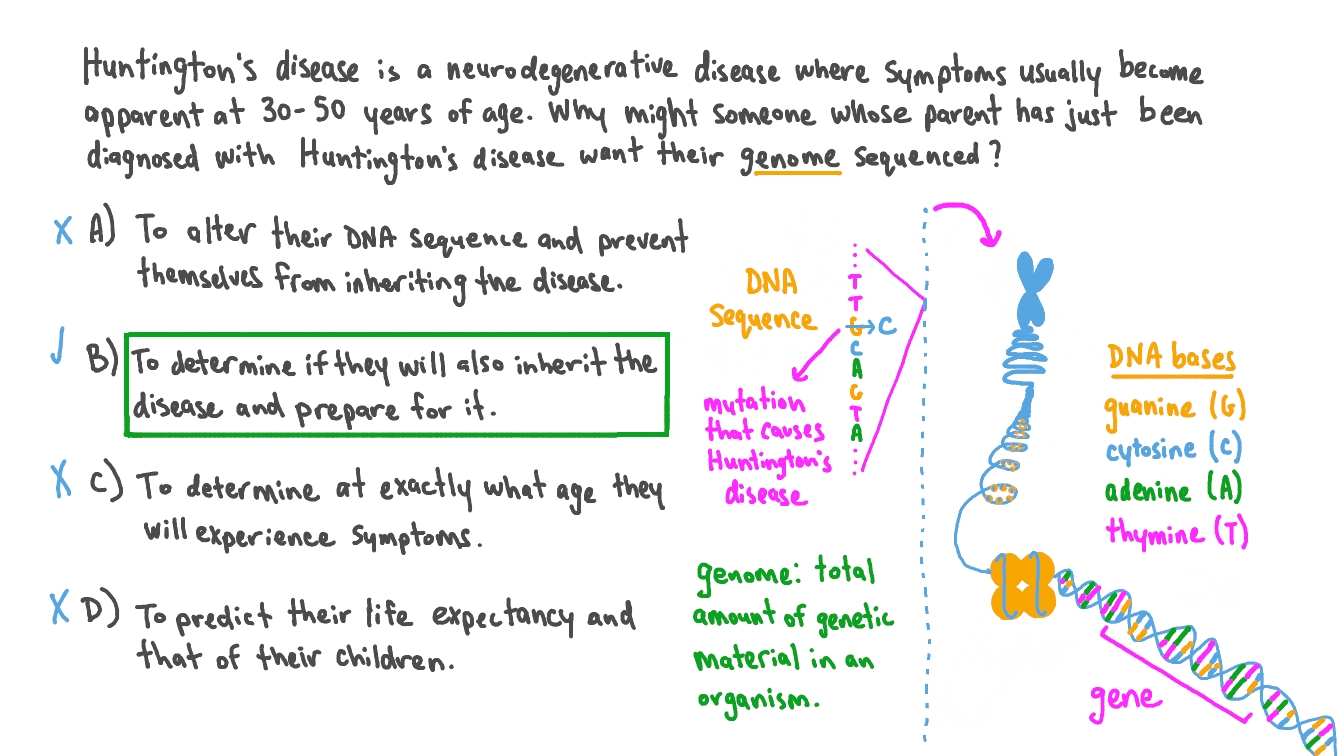 Huntington's disease is a neurodegenerative disease where symptoms usually become
apparent at 30-50 years of age. Why might someone whose parent has just been
diagnosed with Huntington's disease want their genome sequenced?
X A) To alter their DNA sequence and prevent
themselves from inheriting the disease.
✓ B) To determine if they will also inherit the
disease and prepare for it.
X C) To determine at exactly what age they
will experience symptoms.
X D) To predict their life expectancy and
that of their children.
DNA
sequence
T
T
G → C
C
A
G
T
A
mutation
that causes
Huntington's
disease
genome: total
amount of genetic
material in an
organism.
DNA bases
guanine (G)
cytosine (C)
adenine (A)
thymine (T)
gene